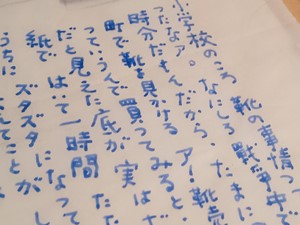 小学校のころ 靴の事情っ
ったなア。なにしろ戦争中で
時分だもんだから、たまに
町で靴を見かける ア!靴売
っていうんで買ってみると、
だと見えた底が実はだ
は‥て一時間 た
紙で ズタズタになって
うちに
てことが し